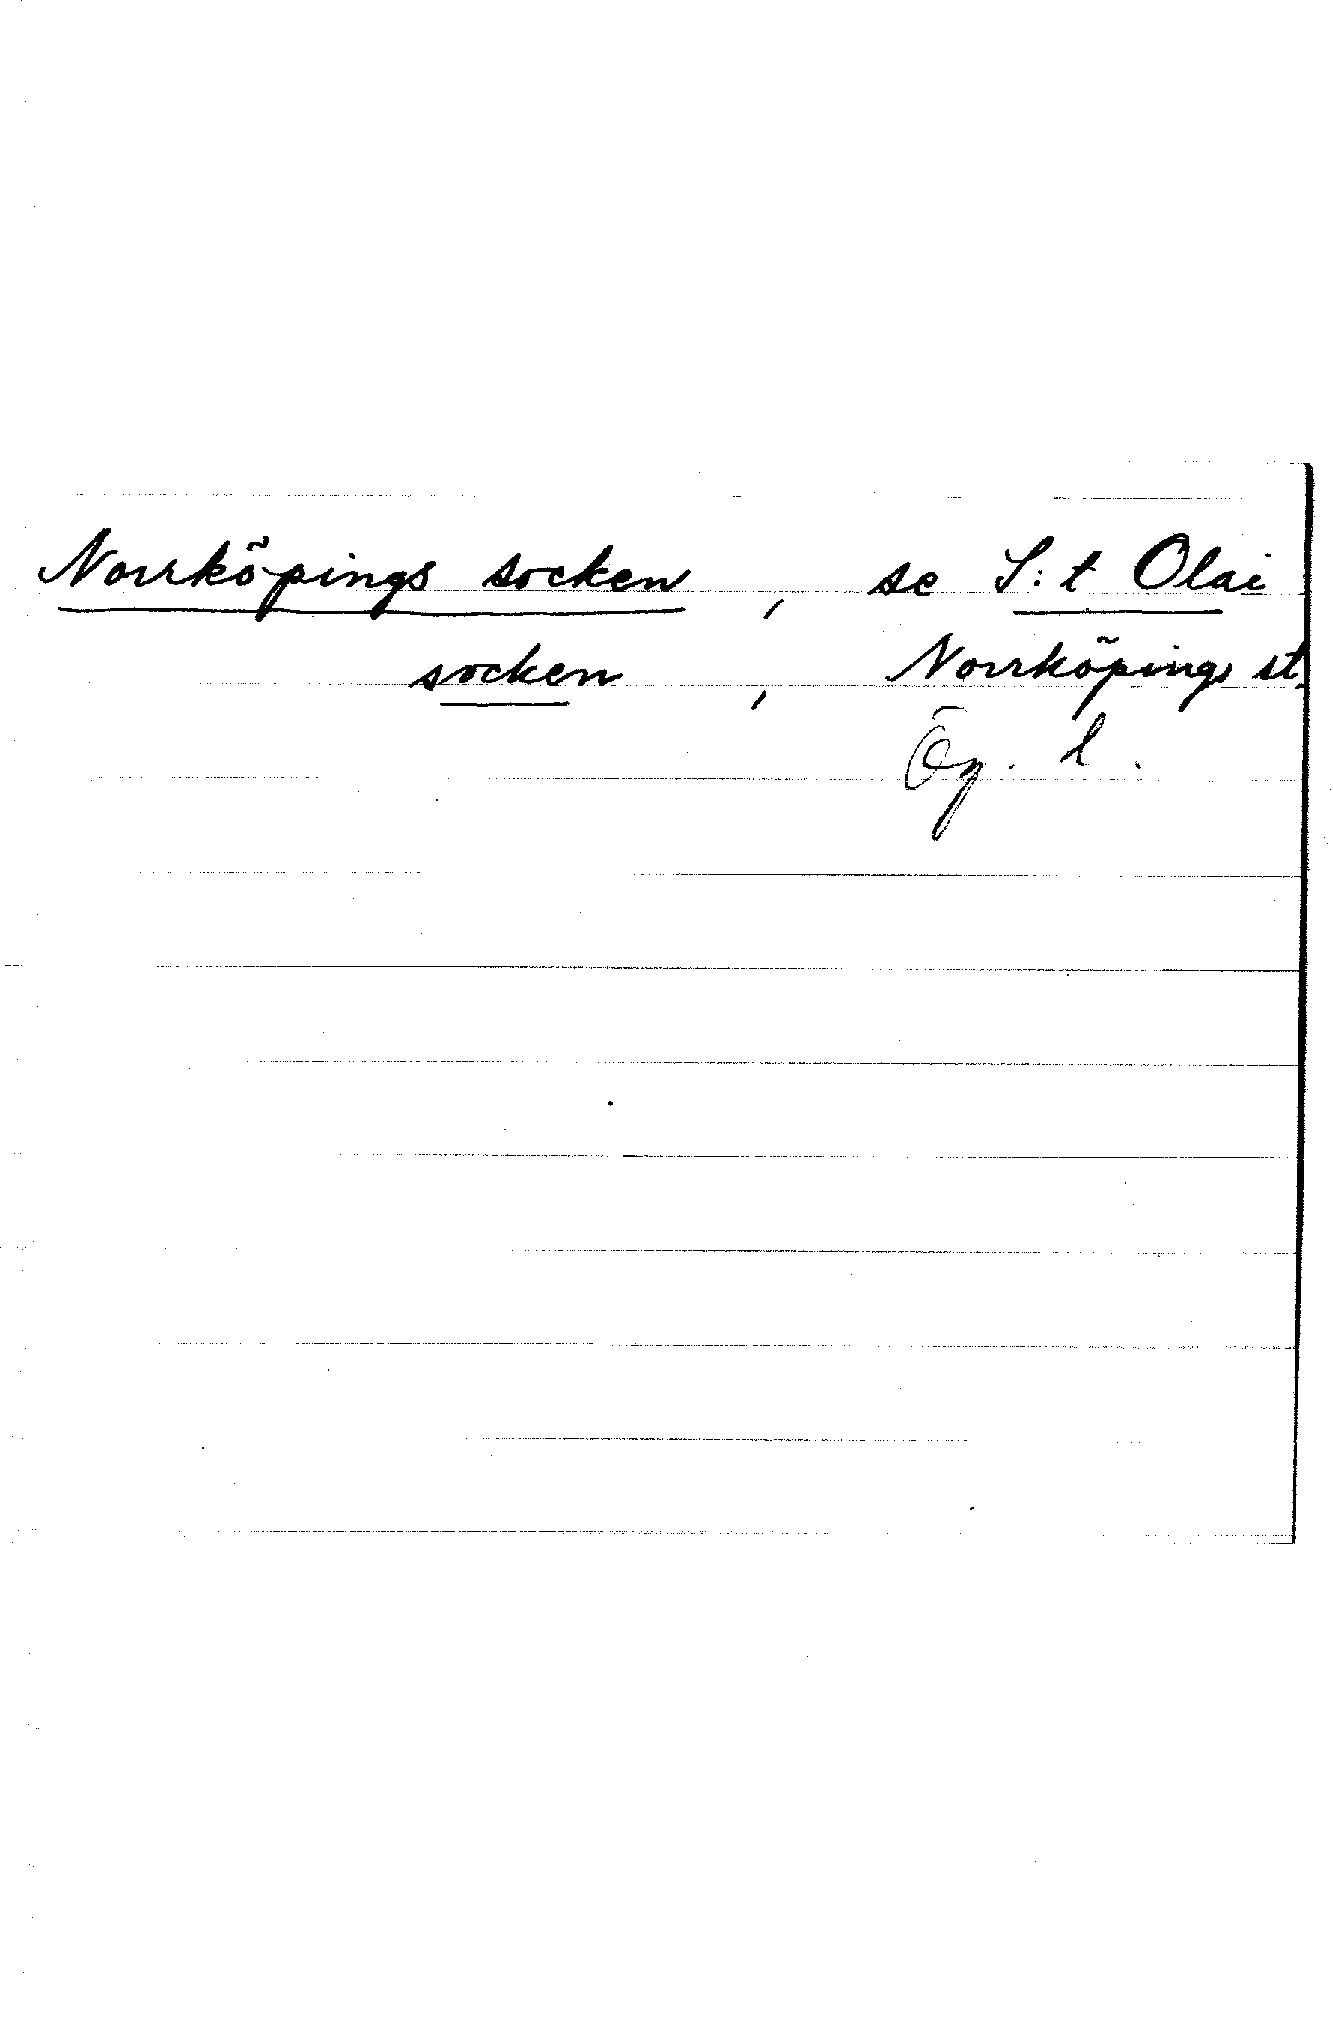 Norrköpings socken, se S:t Olai
socken, Norrköpings st.
Ög. l.